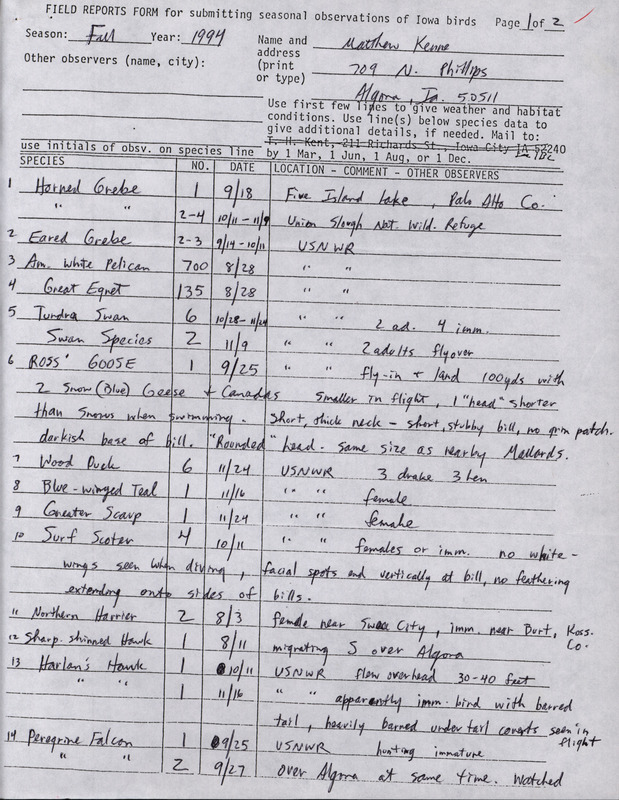 FIELD REPORTS FORM for submitting seasonal observations of Iowa birds Page 1 of 2
Season: Fall Year: 1994 Name and Matthew Kenne
Other observers (name, city): address
(print 709 N. Phillips
or type) Algona, Ia. 50511
Use first few lines to give weather and habitat
conditions. Use line(s) below species data to
give additional details, if needed. Mail to:
T. H. Kent, 211 Richards St., Iowa City IA 52240
use initials of obsv. on species line by 1 Mar, 1 Jun, 1 Aug, or 1 Dec.
SPECIES NO. DATE LOCATION - COMMENT - OTHER OBSERVERS
1 Horned Grebe 1 9/18 Five Island Lake, Palo Alto Co.
" " 2-4 10/11 - 11/9 Union Slough Nat. Wild. Refuge
2 Eared Grebe 2-3 9/14 - 10/11 USNWR
3 Am. White Pelican 700 8/28 " "
4 Great Egret 135 8/28 " "
5 Tundra Swan 6 10/28 - 11/24 " " 2 ad. 4 imm.
Swan Species 2 11/9 " " 2 adults flyover
6 ROSS' GOOSE 1 9/25 " " fly-in & land 100yds with
2 Snow (Blue) Geese & Canadas smaller in flight, 1 "head" shorter
than Snows when swimming. Short, thick neck - short, stubby bill, no grin patch.
darkish base of bill. "Rounded" head. same size as nearby Mallards.
7 Wood Duck 6 11/24 USNWR 3 drake 3 hen
8 Blue-winged Teal 1 11/16 " " female
9 Greater Scaup 1 11/24 " " female
10 Surf Scoter 4 10/11 " " females or imm. no white-
wings seen when diving, facial spots end vertically at bill, no feathering
extending onto sides of bills.
11 Northern Harrier 2 8/3 female near Swea City, imm. near Burt, Koss. Co.
12 Sharp. shinned Hawk 1 8/11 migrating S over Algona
13 Harlan's Hawk 1 10/11 USNWR flew overhead 30-40 feet
" " 1 11/16 " " apparently imm. bird with barred
tail, heavily barred undertail coverts seen in flight
14 Peregrine Falcon 1 9/25 USNWR hunting immature
" " 2 9/27 over Algona at same time. Watched